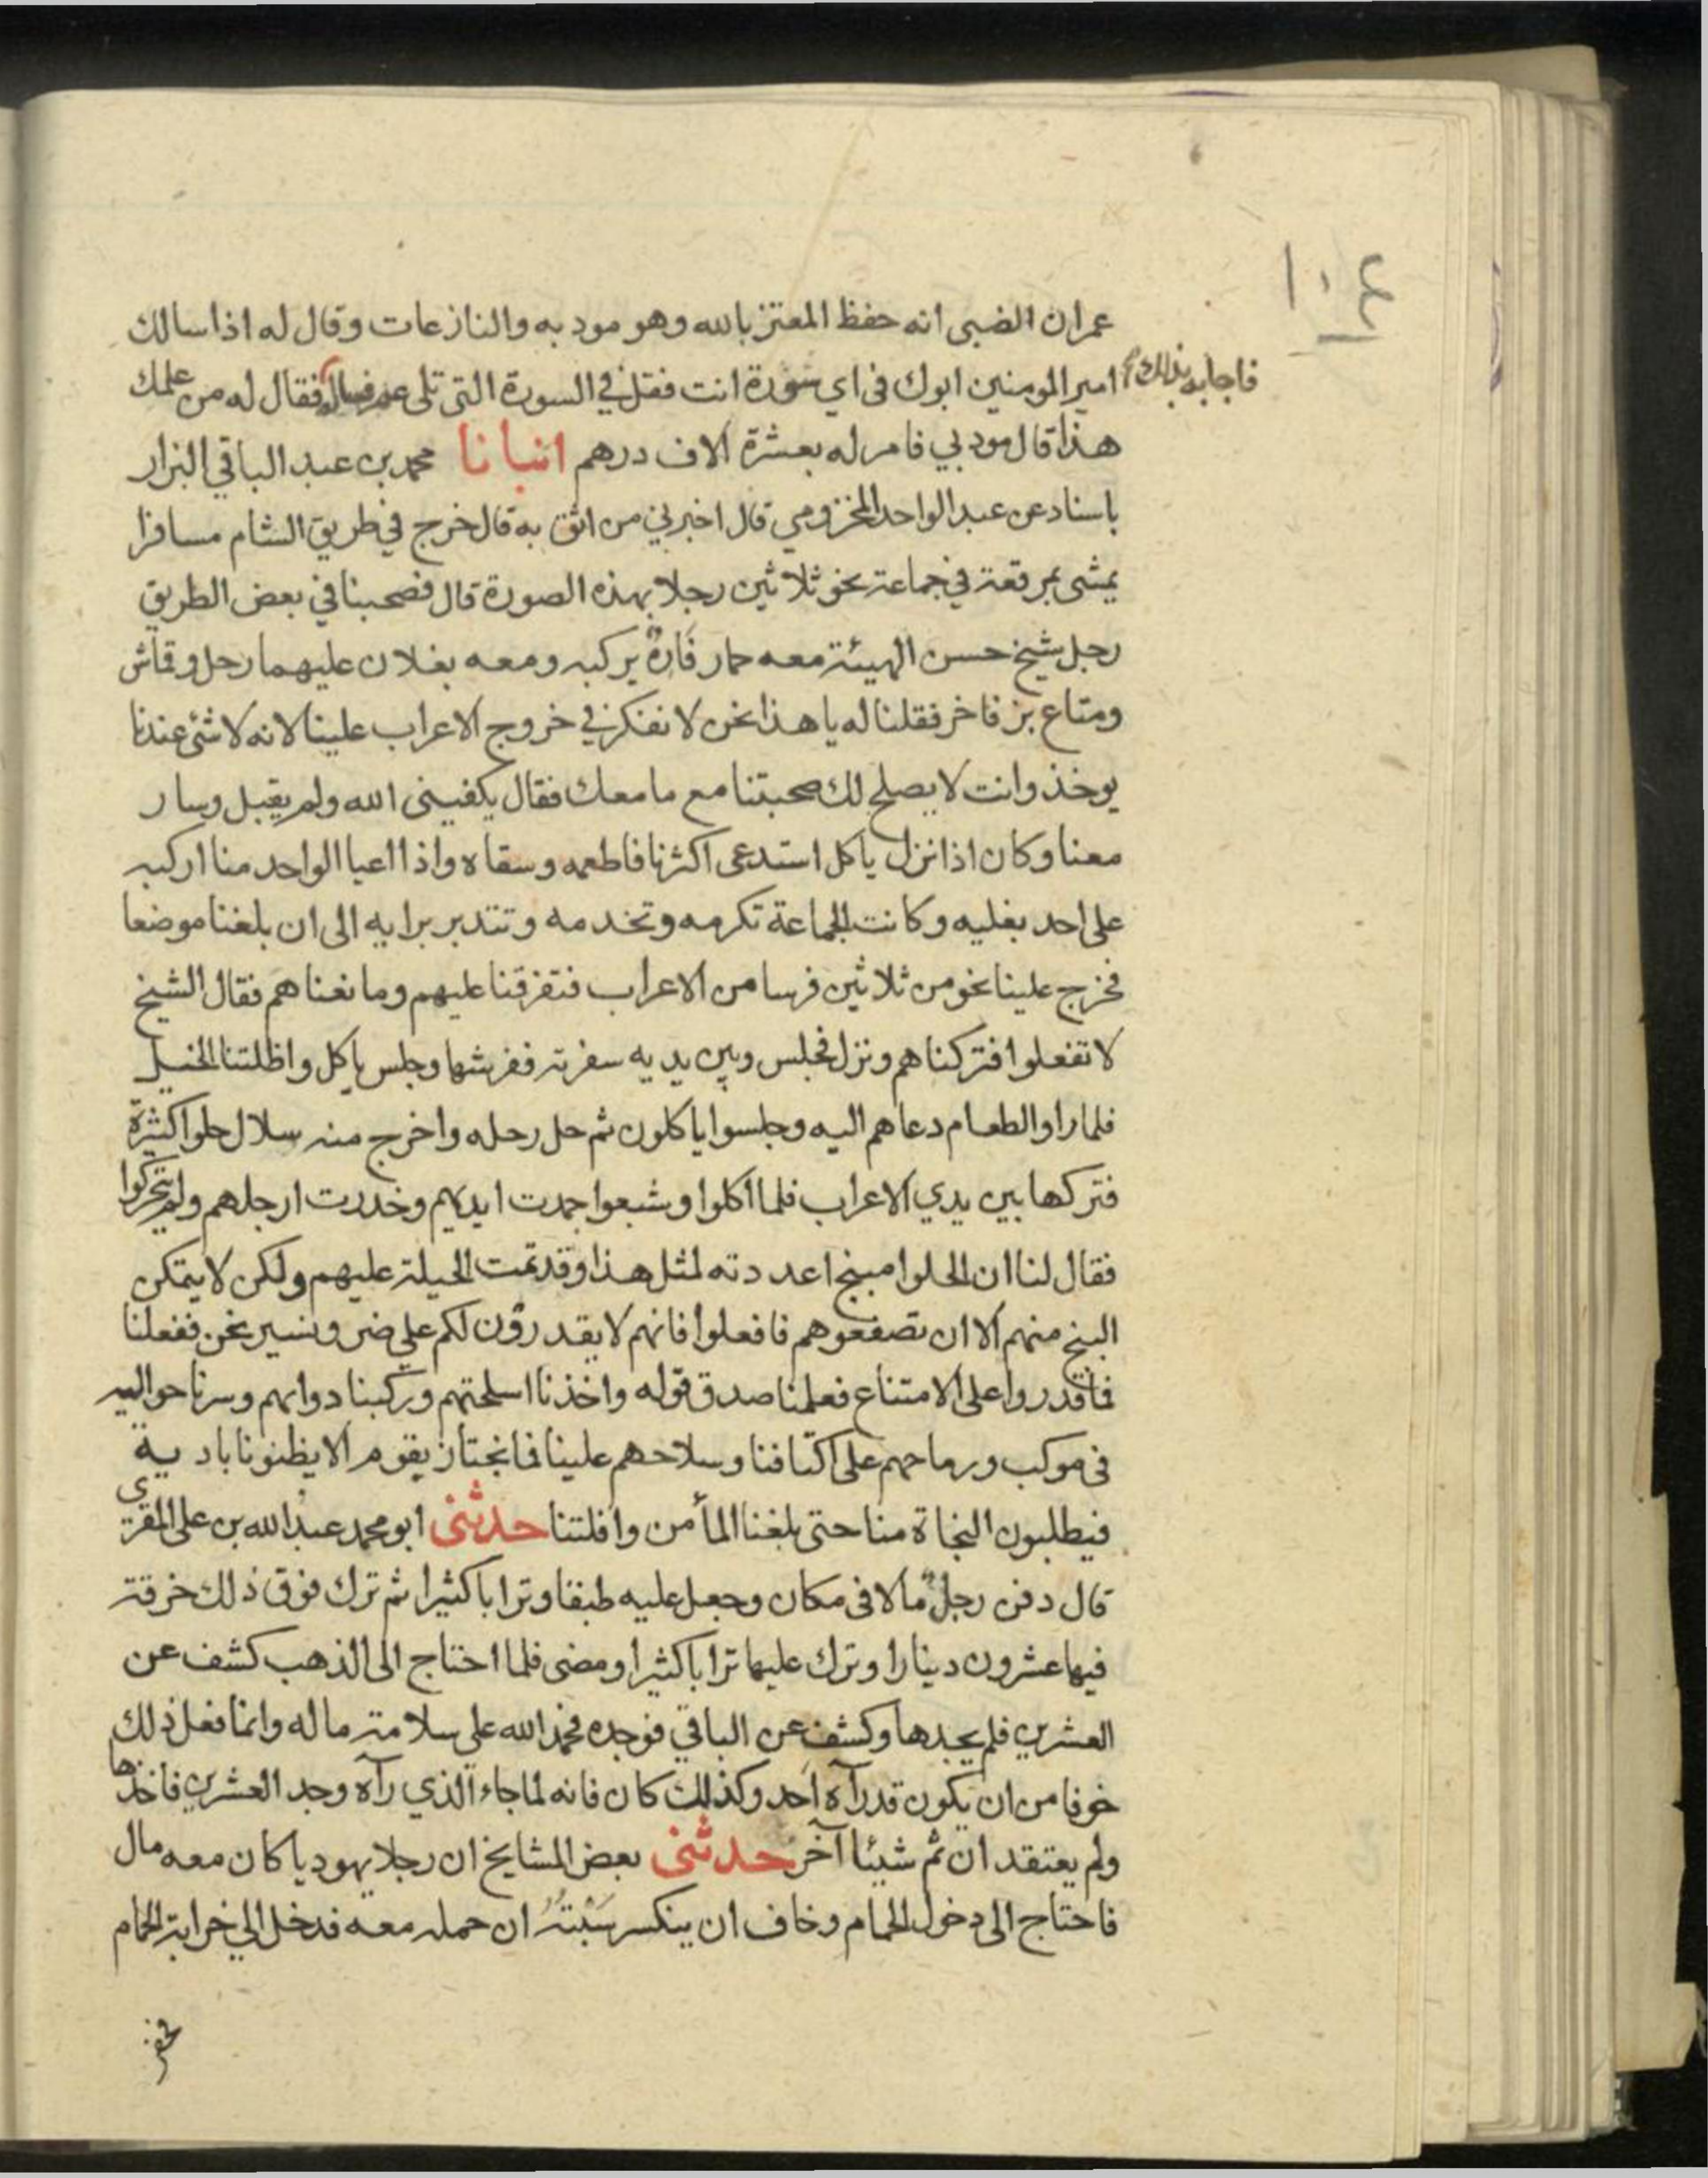 ١٠٤
عمران الضبى انه حفظ المعتز بالله وهو مودبه والنازعات وقال له اذا سالك
امير المومنين ابوك فى اي سورة انت فقل في السورة التى تلى عبس فساله فقال له من علمك
فاجابه بذلك
هذا قال مودبي فامر له بعشرة الاف درهم انبانا محمد بن عبد الباقي البزار
باسناد عن عبد الواحد المخزومي قال اخبرني من اثق به قال خرج في طريق الشام مسافرا
يمشى بمرقعة في جماعة نحو ثلاثين رجلا بهذه الصورة قال فصحبنا في بعض الطريق
رجل شيخ حسن الهيئة معه حمار فَارهٌ يركبه ومعه بغلان عليهما رحل وقماش
ومتاع بز فاخر فقلنا له يا هذا نحن لا نفكر في خروج الاعراب علينا لانه لا شئ عندنا
يوخذ وانت لا يصلح لك صحبتنا مع ما معك فقال يكفينى الله ولم يقبل وسار
معنا وكان اذا نزل ياكل استدعى اكثرنا فاطعمه وسقاه واذا اعيا الواحد منا اركبه
على احد بغليه وكانت الجماعة تكرمه وتخدمه وتتدبر برايه الى ان بلغنا موضعا
فخرج علينا نحو من ثلاثين فرسا من الاعراب فتفرقنا عليهم ومانعناهم فقال الشيخ
لا تفعلوا فتركناهم ونزل فجلس وبين يديه سفرته ففرشها وجلس ياكل واظلتنا الخيل
فلما راوا الطعام دعاهم اليه وجلسوا ياكلون ثم حل رحله واخرج منه سلال حلوا كثيرة
فتركها بين يدي الاعراب فلما اكلوا وشبعوا جمدت ايديهم وخدرت ارجلهم ولم يتحركوا
فقال لنا ان الحلوا مبنج اعددته لمثل هذا وقد تمت الحيلة عليهم ولكن لا يتمكن
البنج منهم الا ان تصفعوهم فافعلوا فانهم لا يقدرون لكم على ضر ونسير نحن ففعلنا
فما قدروا على الامتناع فعلمنا صدق قوله واخذنا اسلحتهم وركبنا دوابهم وسرنا حواليه
فى موكب ورماحهم على اكتافنا وسلاحهم علينا فما نجتاز بقوم الا يظنونا بادية
فيطلبون النجاة منا حتى بلغنا المأمن وافلتنا حدثنى ابو محمد عبد الله بن على المقري
قال دفن رجل مالا فى مكان وجعل عليه طبقا وترابا كثيرا ثم ترك فوق ذلك خرقة
فيها عشرون دينارا وترك عليها ترابا كثيرا ومضى فلما احتاج الى الذهب كشف عن
العشرين فلم يجدها وكشف عن الباقي فوجده فحمد الله على سلامة ماله وانما فعل ذلك
خوفا من ان يكون قد رآه احد وكذلك كان فانه لما جاء الذي رآه وجد العشرين فاخذها
ولم يعتقد ان ثم شيئا آخر حدثنى بعض المشايخ ان رجلا يهوديا كان معه مال
فاحتاج الى دخول الحمام وخاف ان ينكسر سَبْتُهُ ان حمله معه فدخل الي خرابة الحمام
فحفر